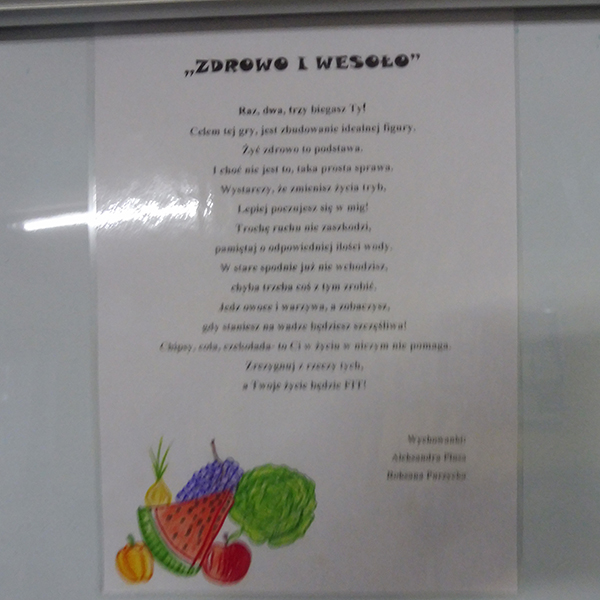 „ZDROWO I WESOŁO”
Raz, dwa, trzy biegasz Ty!
Celem tej gry, jest zbudowanie idealnej figury.
Żyć zdrowo to podstawa.
I choć nie jest to, taka prosta sprawa.
Wystarczy, że zmienisz życia tryb,
Lepiej poczujesz się w mig!
Trochę ruchu nie zaszkodzi,
pamiętaj o odpowiedniej ilości wody.
W stare spodnie już nie wchodzisz,
chyba trzeba coś z tym zrobić.
Jedz owoce i warzywa, a zobaczysz,
gdy staniesz na wadze będziesz szczęśliwa!
Chipsy, cola, czekolada- to Ci w życiu w niczym nie pomaga.
Zrezygnuj z rzeczy tych,
a Twoje życie będzie FIT!
Wychowanki:
Aleksandra